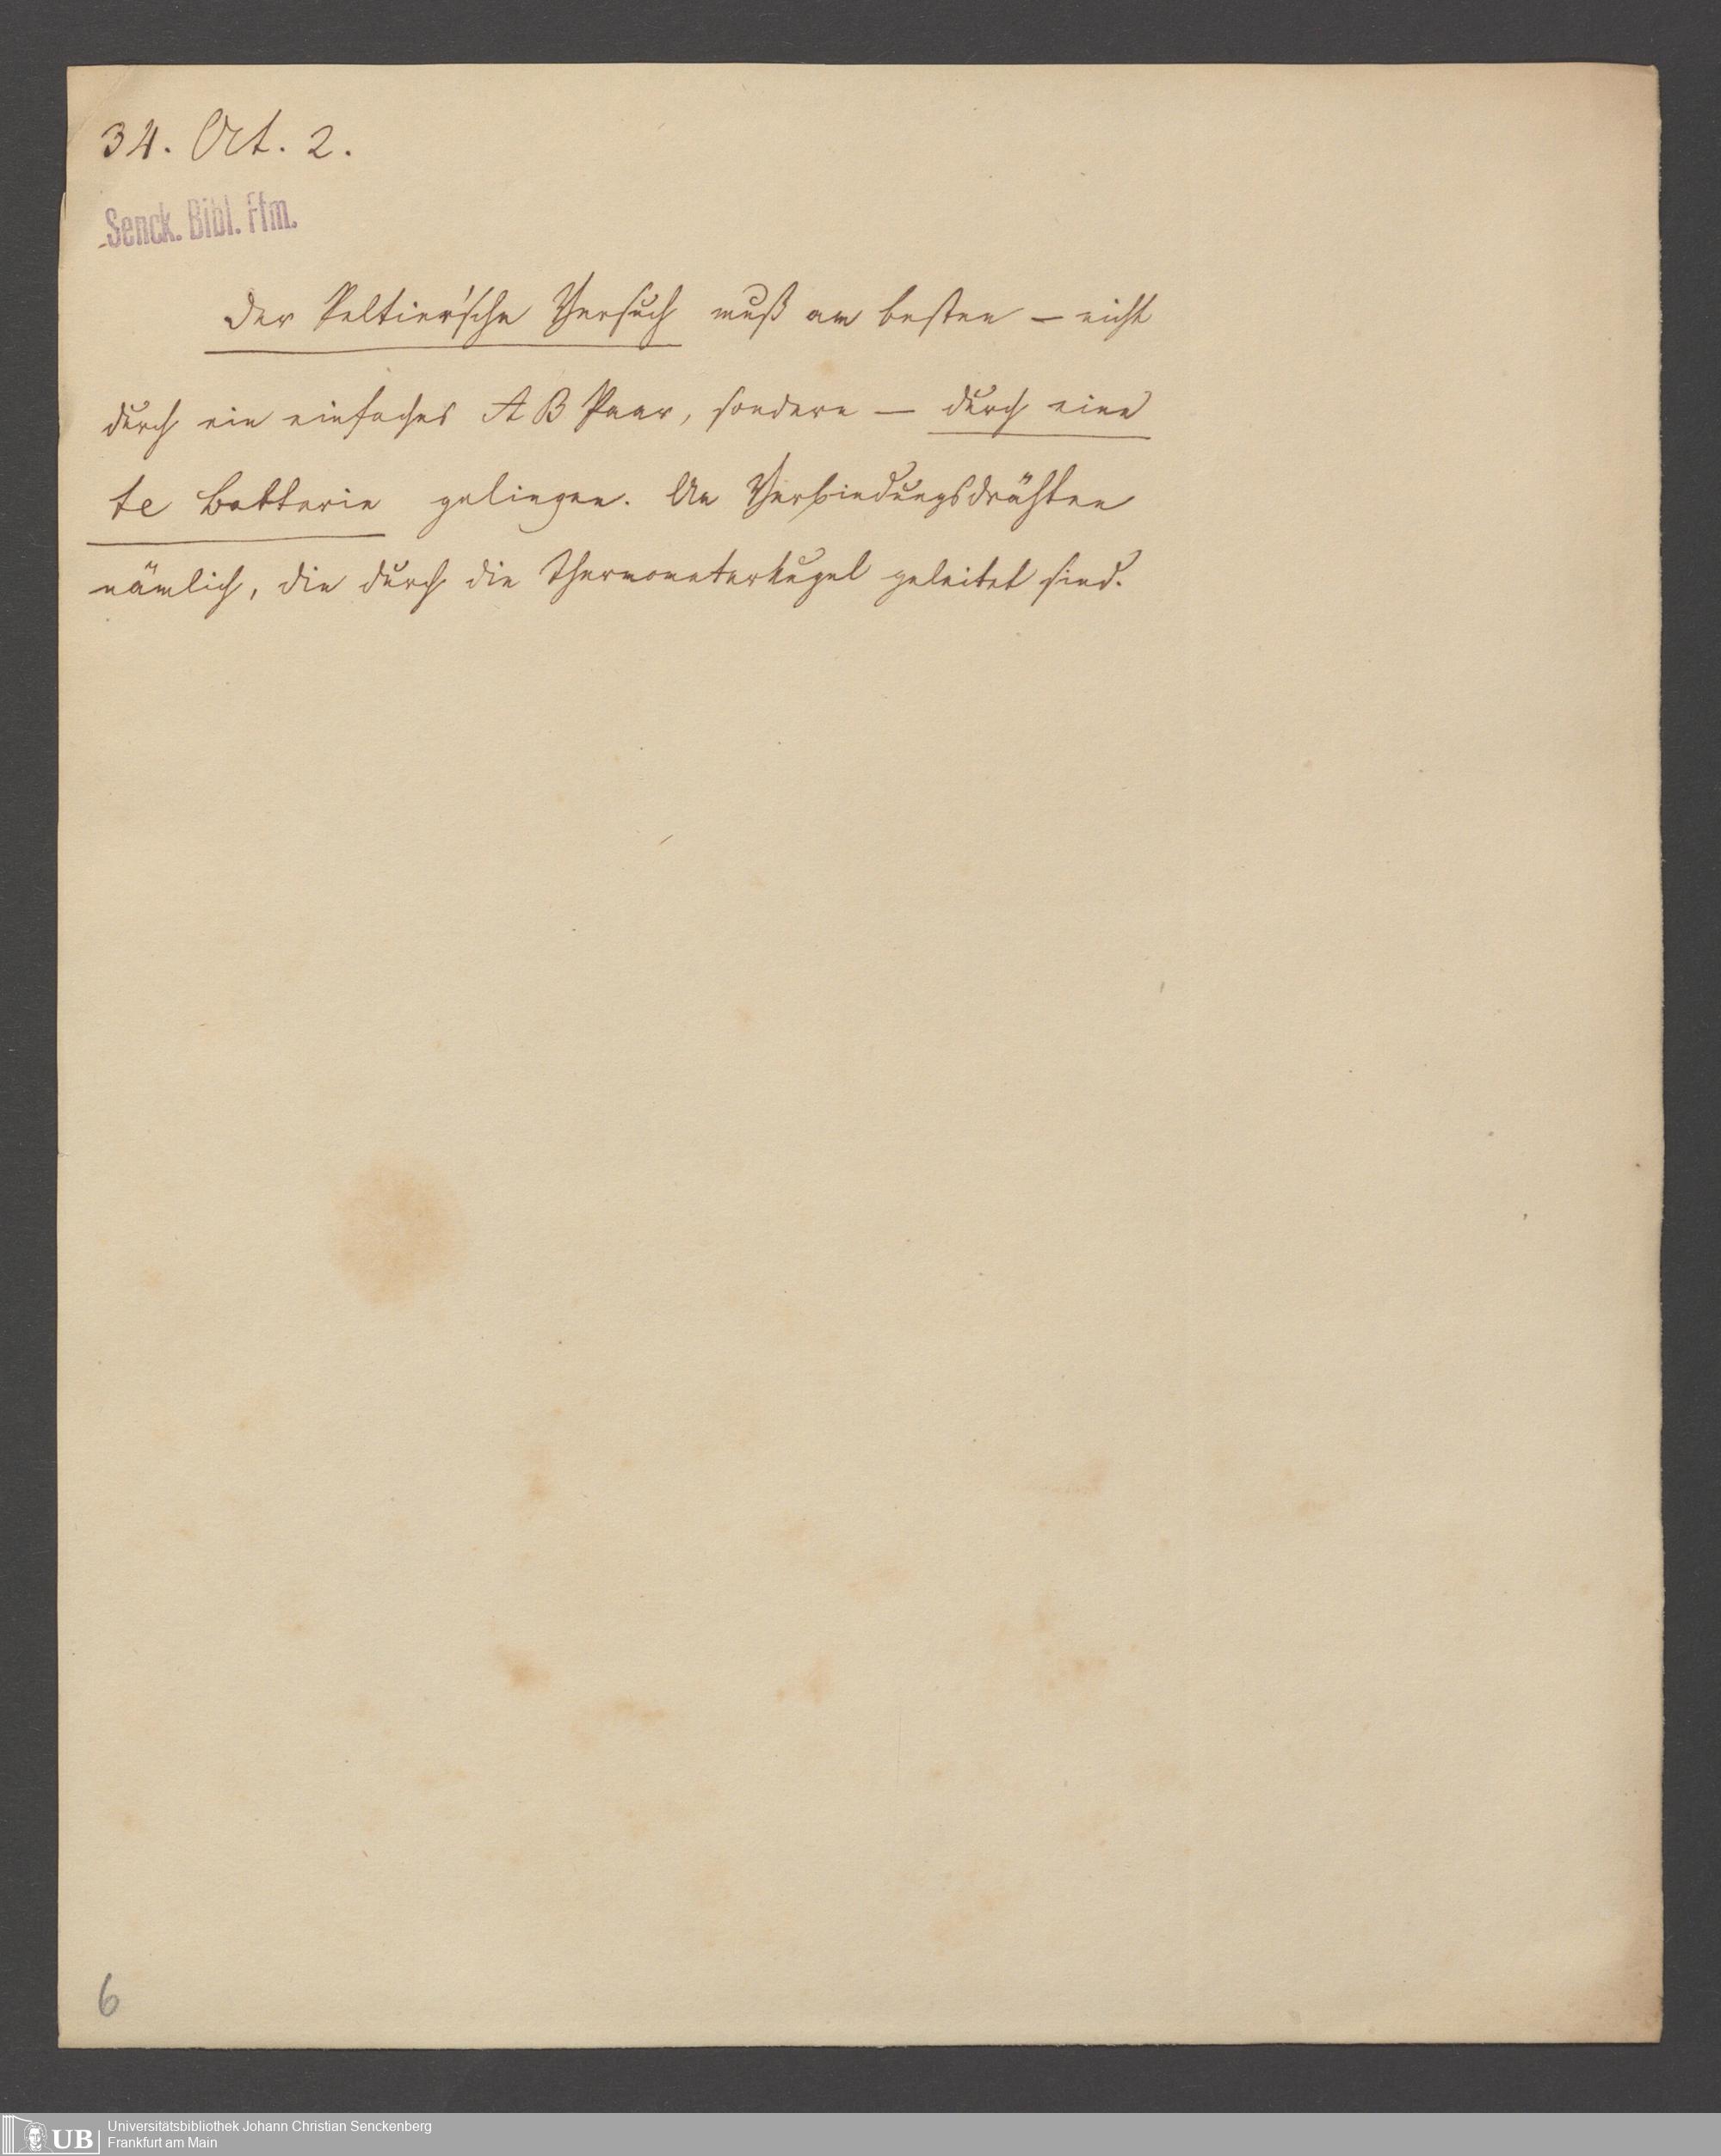 34. Oct. 2.
Senck. Bibl. Ffm.
Der Peltier'sche Versuch muß am besten – nicht
durch ein einfaches A B Paar, sondern – durch eine
te Batterie gelingen. An Verbindungsdrähten
nämlich, die durch die Thermometerkugel geleitet sind.
6
UB
Universitätsbibliothek Johann Christian Senckenberg
Frankfurt am Main